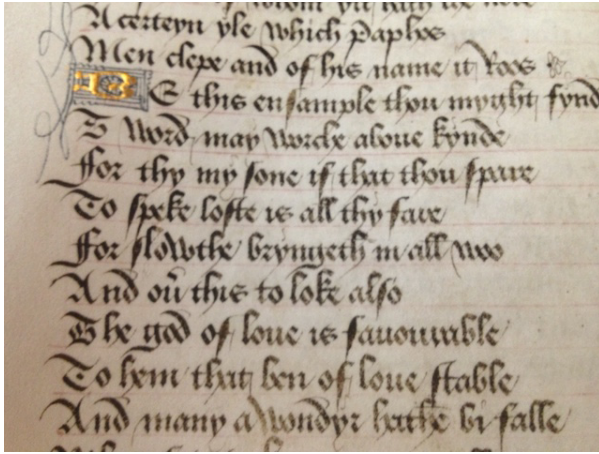 whom yit
A certeyn yle which Paphos
Men clepe and of his name it Roos
BE this ensample thou myght fynd
T word may worche aboue kynde
For thy my sone if that thou spare
To speke loste is all thy fare
For slowthe bryngeth in all woo
And oũ this to loke also
The god of loue is fauourable
To hem that ben of loue stable
And many a wondyr hathe bi falle